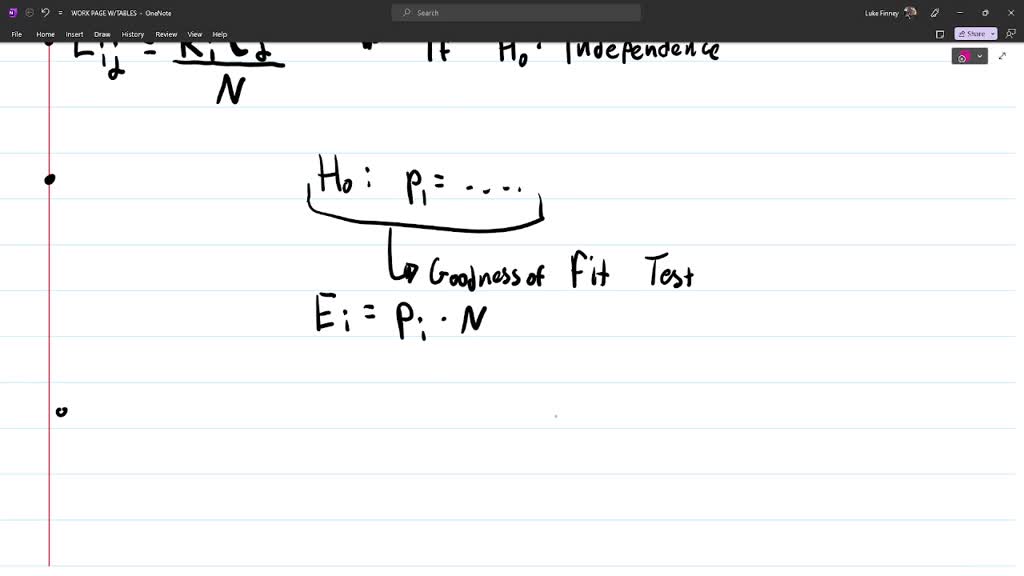 WORK PAGE W/TABLES - OneNote
Search
Luke Finney
File Home Insert Draw History Review View Help
Share
E_ij = R_i C_j / N
If H₀: Independence
H₀: p₁ = ....
Goodness of Fit Test
E_i = p_i · N